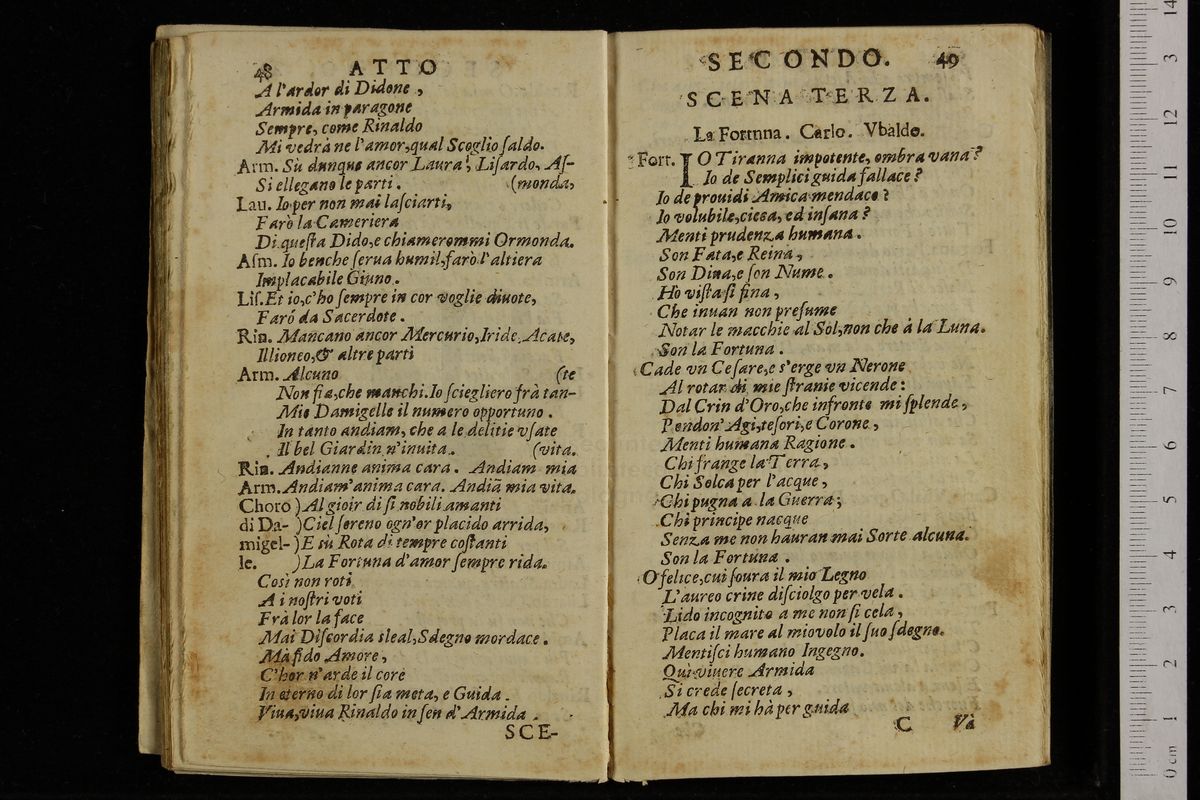 48 ATTO
A l'ardor di Didone,
Armida in paragone
Sempre, come Rinaldo
Mi vedrà ne l'amor,qual Scoglio ſaldo.
Arm. Sù dunque ancor Laura, Liſardo, Aſ-
Si ellegano le parti. (monda,
Lau. Io per non mai laſciarti,
Farò la Cameriera
Di queſta Dido,e chiamerommi Ormonda.
Aſm. Io benche ſerua humil,farò l'altiera
Implacabile Giuno.
Liſ. Et io,c'ho ſempre in cor voglie diuote,
Farò da Sacerdote.
Rin. Mancano ancor Mercurio,Iride,Acate,
Illioneo,& altre parti
Arm. Alcuno (te
Non fia,che manchi.Io ſciegliero frà tan-
Mie Damigelle il numero opportuno.
In tanto andiam, che a le delitie vſate
Il bel Giardin n'inuita. (vita.
Rin. Andianne anima cara. Andiam mia
Arm. Andiam'anima cara. Andiã mia vita.
Choro ) Al gioir di ſi nobili amanti
di Da- ) Ciel ſereno ogn'or placido arrida,
migel- ) E sù Rota di tempre coſtanti
le. ) La Fortuna d'amor ſempre rida.
Così non roti
A i noſtri voti
Frà lor la face
Mai Diſcordia sleal,Sdegno mordace.
Mà fido Amore,
C'hor n'arde il core
In eterno di lor ſia meta, e Guida.
Viua,viua Rinaldo in ſen d'Armida.
SCE-
SECONDO. 49
SCENA TERZA.
La Fortnna. Carlo. Vbaldo.
Fort. IO Tiranna impotente, ombra vana?
Io de Semplici guida fallace?
Io de prouidi Amica mendace?
Io volubile,cieca, ed inſana?
Menti prudenza humana.
Son Fata,e Reina,
Son Diua,e ſon Nume.
Hò viſta ſi fina,
Che inuan non preſume
Notar le macchie al Sol,non che à la Luna.
Son la Fortuna.
Cade vn Ceſare,e s'erge vn Nerone
Al rotar di mie ſtranie vicende:
Dal Crin d'Oro,che infronte mi ſplende,
Pendon' Agi,teſori,e Corone,
Menti humana Ragione.
Chi frange la Terra,
Chi Solca per l'acque,
Chi pugna a la Guerra;
Chi principe nacque
Senza me non hauran mai Sorte alcuna.
Son la Fortuna.
O felice,cui ſoura il mio Legno
L'aureo crine diſciolgo per vela.
Lido incognito a me non ſi cela,
Placa il mare al miovolo il ſuo ſdegno.
Mentiſci humano Ingegno.
Quì viuere Armida
Si crede ſecreta,
Ma chi mi hà per guida
C Và
0 cm 1 2 3 4 5 6 7 8 9 10 11 12 3 14